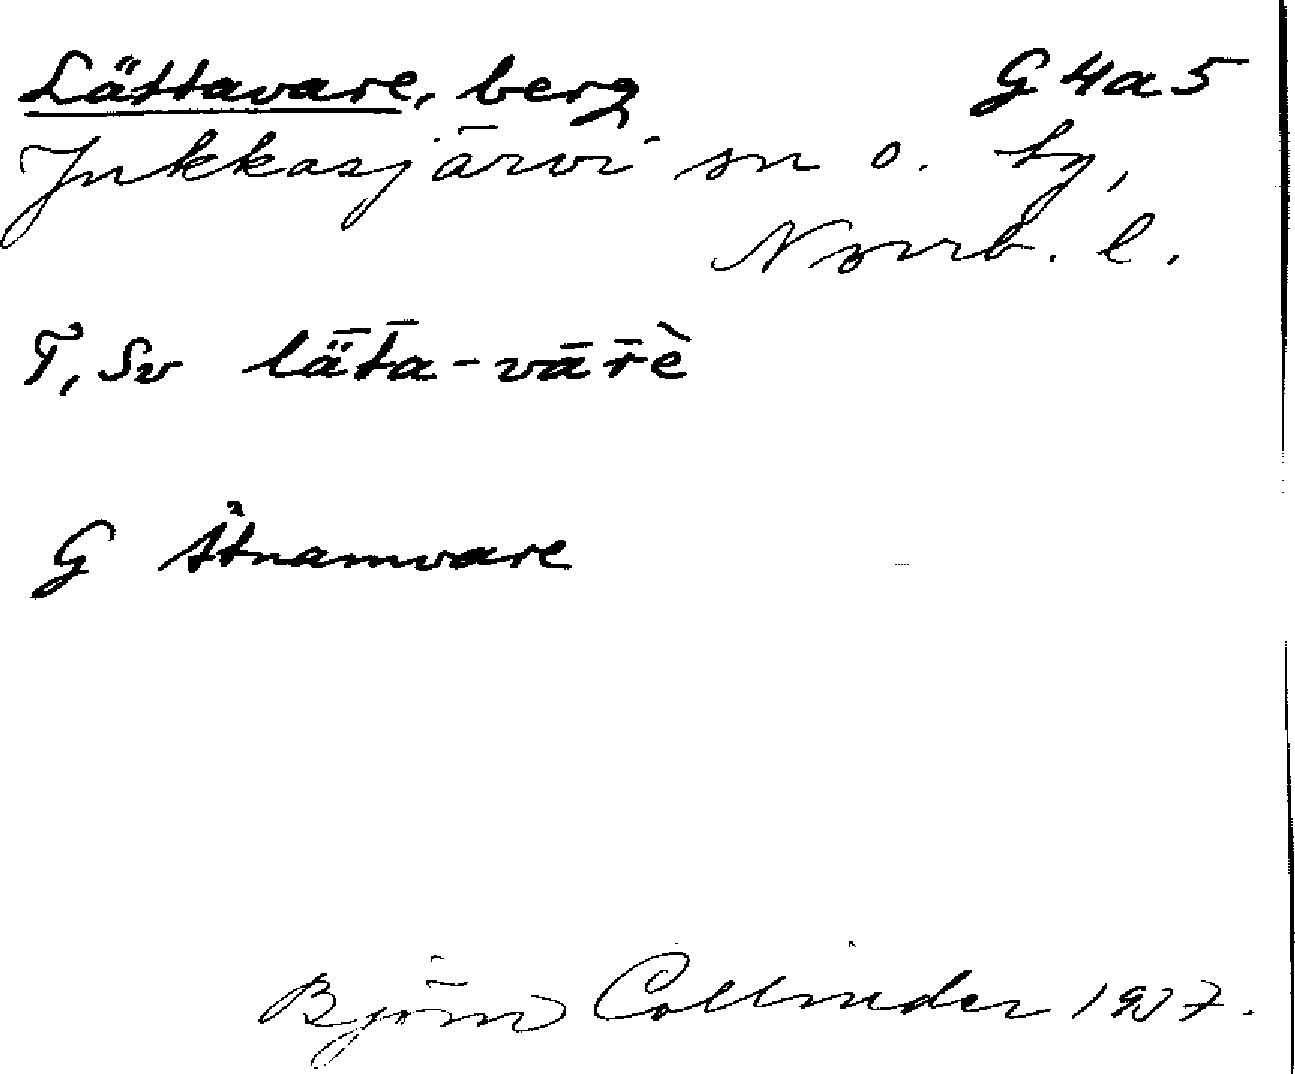 Lättavare, berg G4a5
Jukkasjärvi sn o. tg,
Norrb. l.
T, Sv lǟt̄a-vār̄è
G Åtnamvare
Björn Collinder 1927.